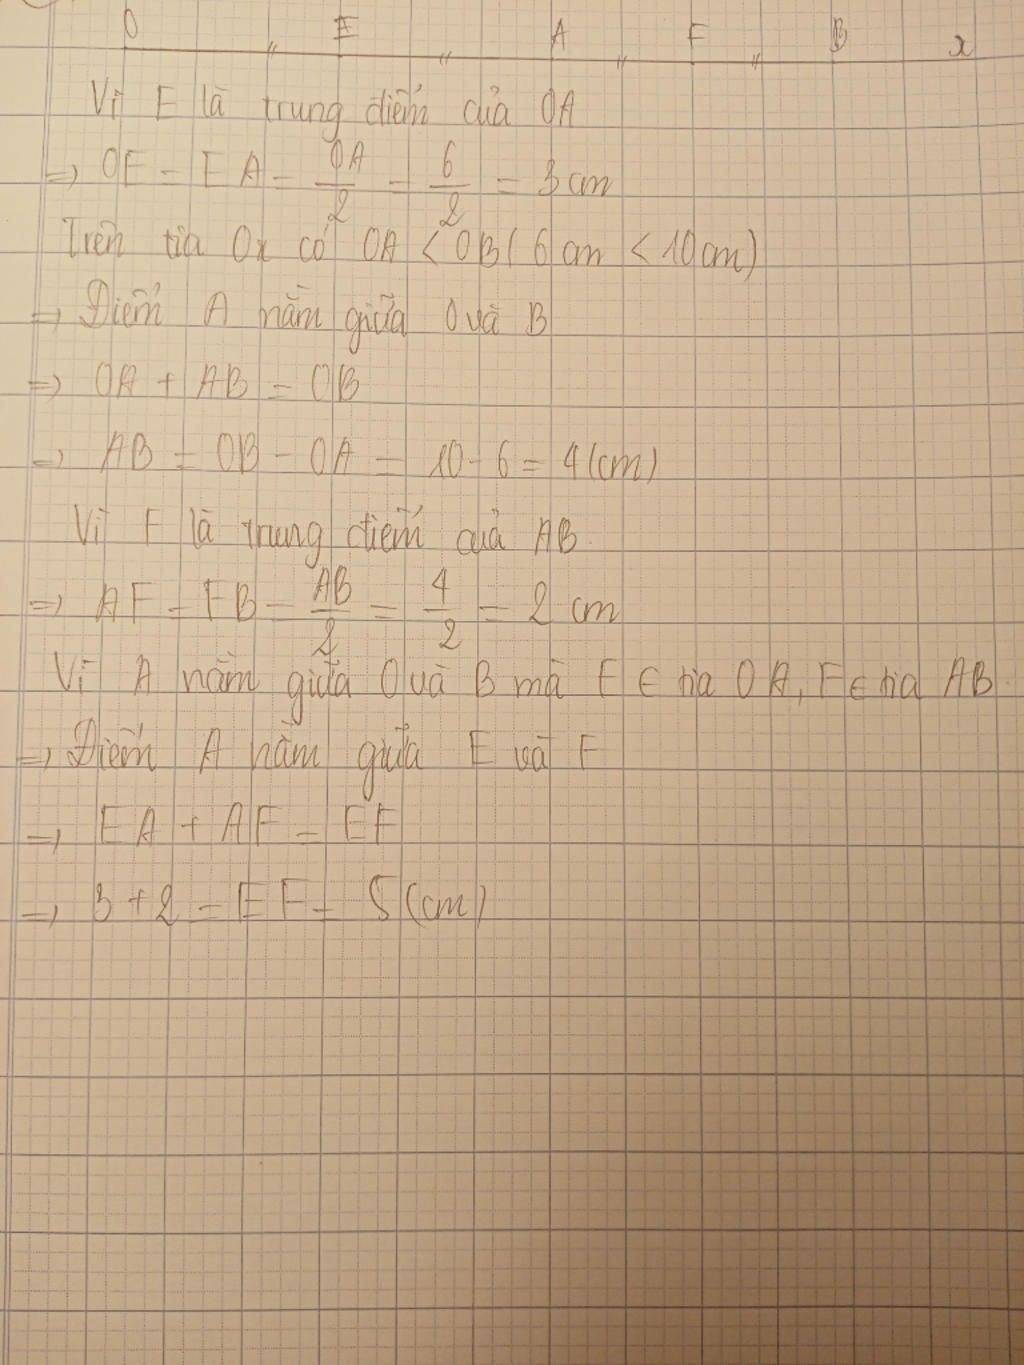 O E A F B x
Vì E là trung điểm của OA
=> OE = EA = OA/2 = 6/2 = 3 cm
Trên tia Ox có OA < OB ( 6 cm < 10 cm)
=> Điểm A nằm giữa O và B
=> OA + AB = OB
=> AB = OB - OA = 10 - 6 = 4 (cm)
Vì F là trung điểm của AB.
=> AF = FB = AB/2 = 4/2 = 2 cm
Vì A nằm giữa O và B mà E ∈ tia OA, F ∈ tia AB.
=> Điểm A nằm giữa E và F
=> EA + AF = EF
=> 3 + 2 = EF = 5 (cm)